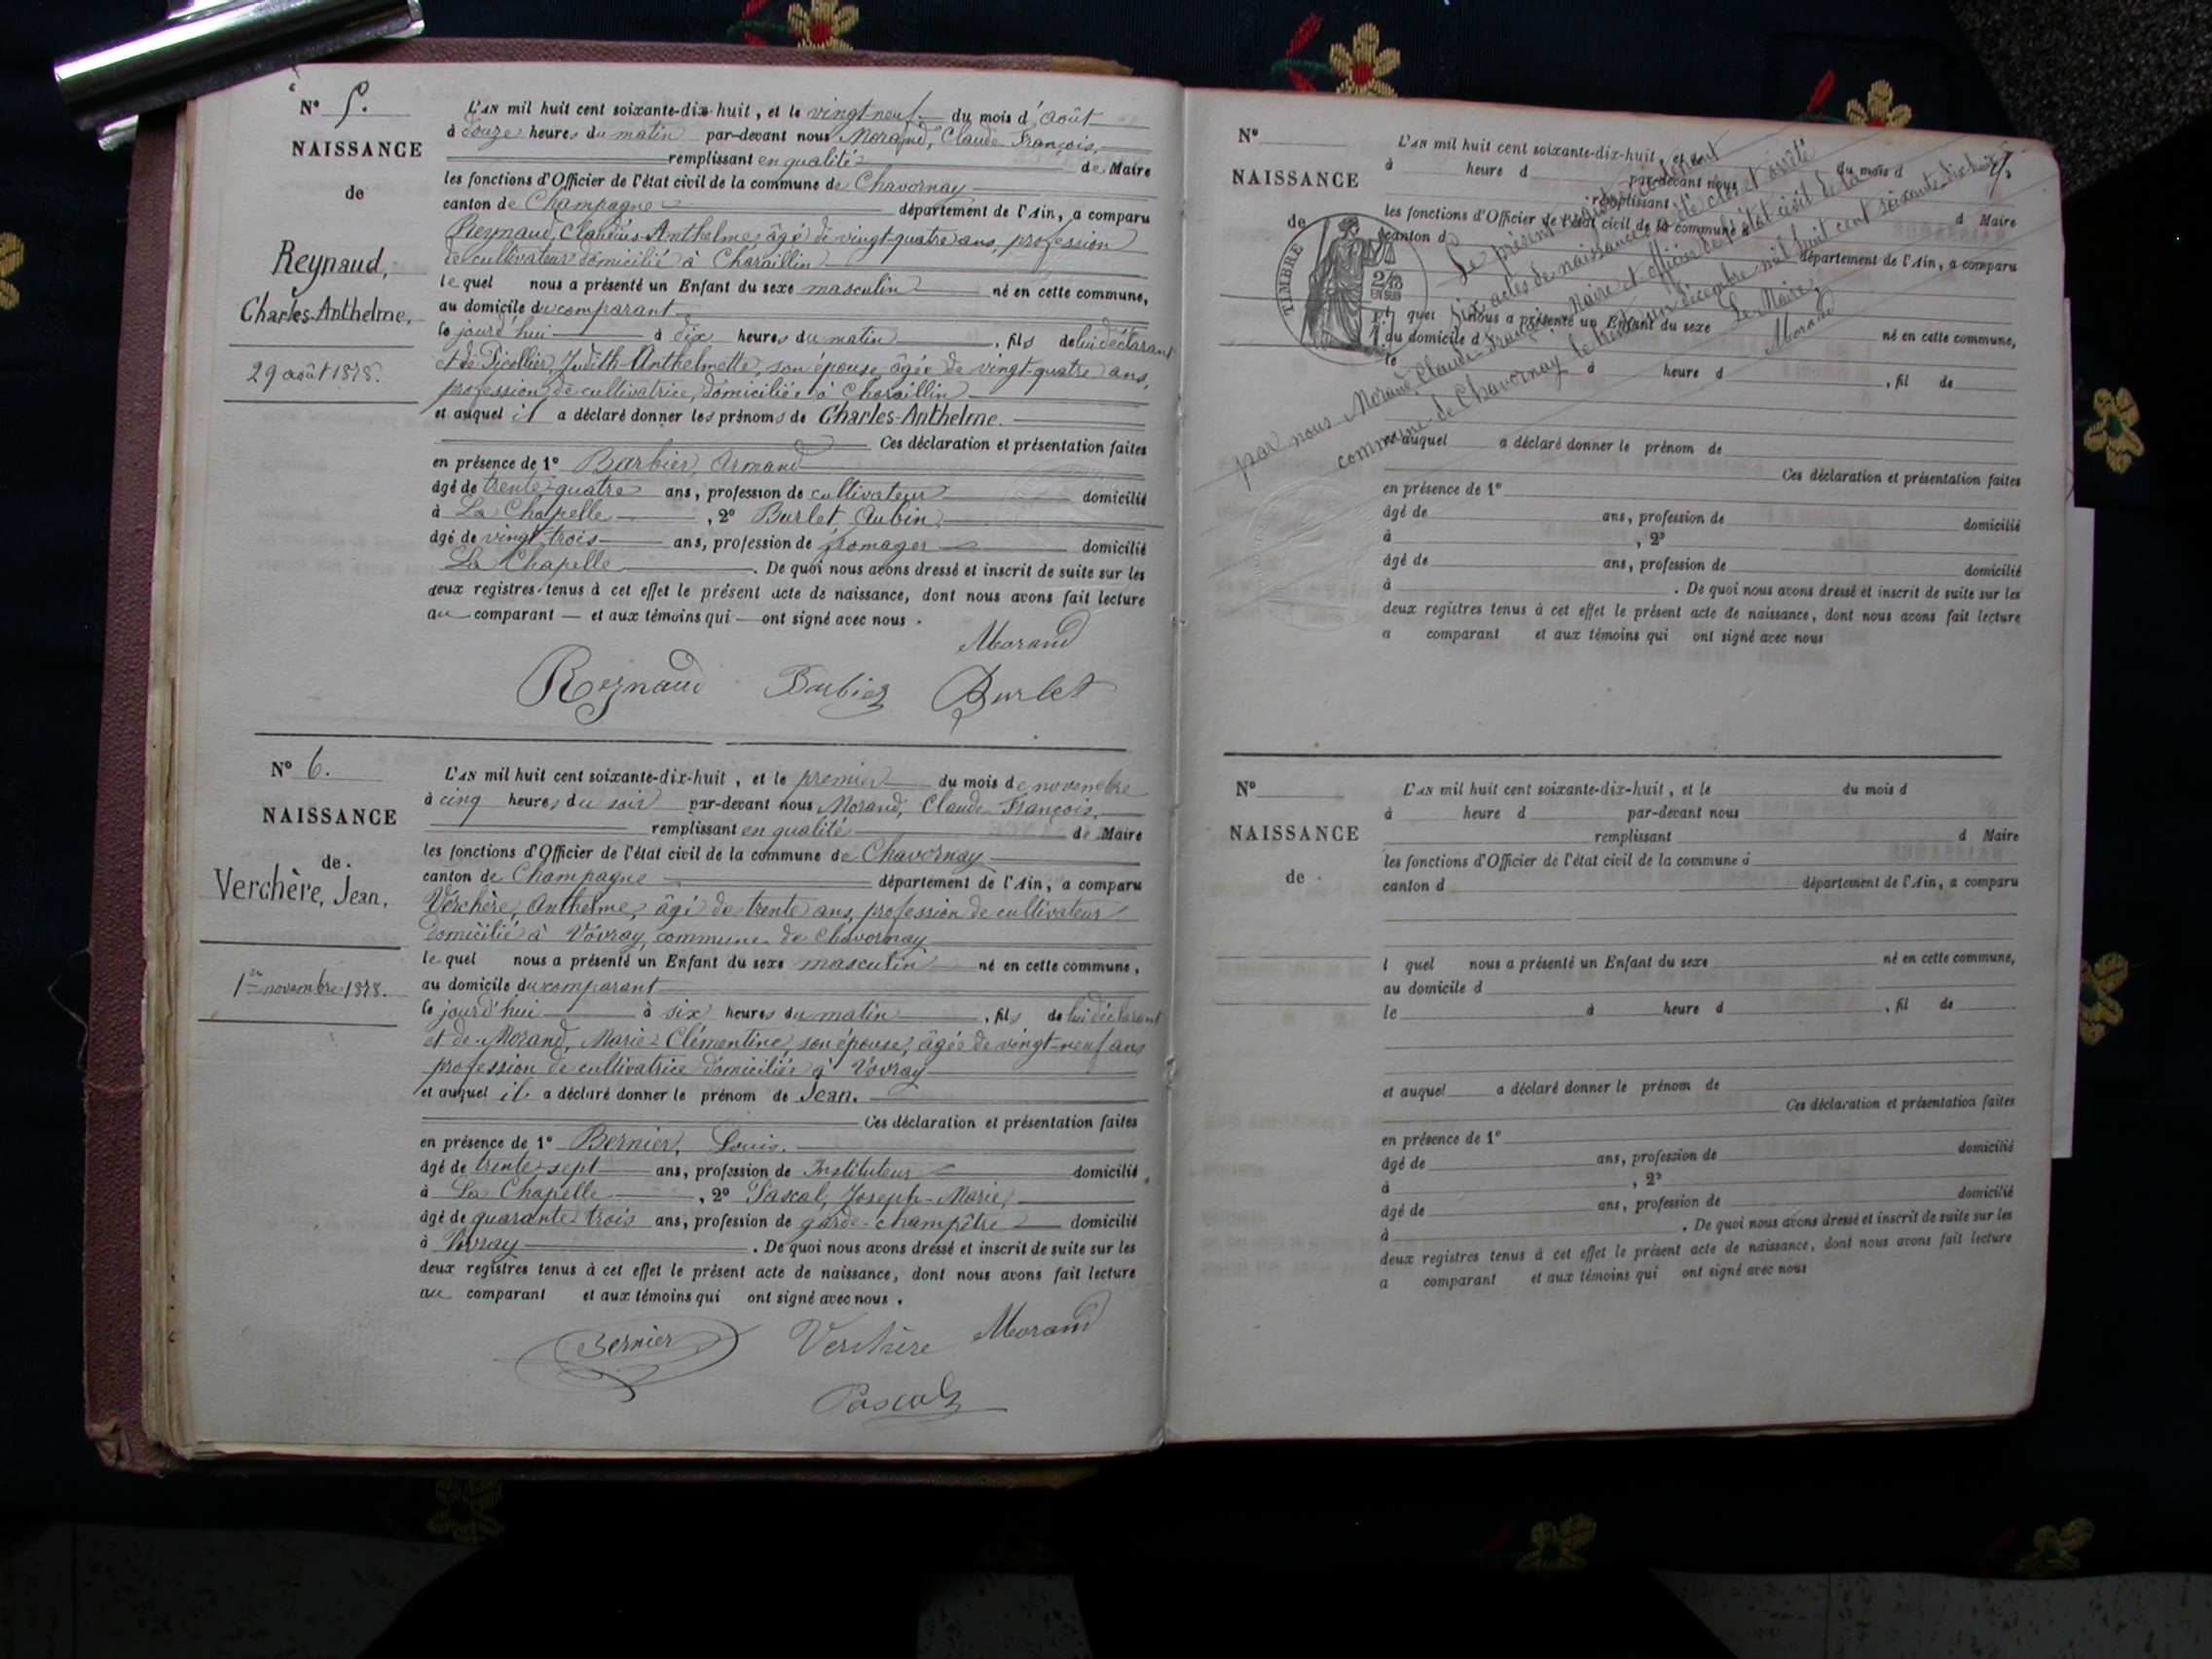 Nº 5.
NAISSANCE
de
Reynaud,
Charles-Anthelme.
29 août 1878.
L'AN mil huit cent soixante-dix-huit, et le vingt-neuf du mois d'août
à douze heures du matin par-devant nous Morand, Claude François,
remplissant en qualité de Maire
les fonctions d'Officier de l'état civil de la commune de Chavornay
canton de Champagne département de l'Ain, a comparu
Reynaud, Claudius-Anthelme, âgé de vingt-quatre ans, profession
de cultivateur domicilié à Charaillin
lequel nous a présenté un Enfant du sexe masculin né en cette commune,
au domicile du comparant
le jourd'hui à dix heures du matin, fils de lui déclarant
et de Picollier, Judith-Anthelmette, son épouse, âgée de vingt-quatre ans,
profession de cultivatrice, domiciliée à Charaillin
et auquel il a déclaré donner les prénoms de Charles-Anthelme.
Ces déclaration et présentation faites
en présence de 1º Barbier, Armand
âgé de trente-quatre ans, profession de cultivateur domicilié
à La Chapelle, 2º Burlet, Aubin,
âgé de vingt trois ans, profession de fromager domicilié
La Chapelle. De quoi nous avons dressé et inscrit de suite sur les
deux registres tenus à cet effet le présent acte de naissance, dont nous avons fait lecture
au comparant et aux témoins qui ont signé avec nous.
Morand
Reynaud Barbier Burlet
Nº 6.
NAISSANCE
de
Verchère, Jean.
1er novembre 1878.
L'AN mil huit cent soixante-dix-huit, et le premier du mois de novembre
à cinq heures du soir par-devant nous Morand, Claude François,
remplissant en qualité de Maire
les fonctions d'Officier de l'état civil de la commune de Chavornay
canton de Champagne département de l'Ain, a comparu
Verchère, Anthelme, âgé de trente ans, profession de cultivateur
domicilié à Vovray, commune de Chavornay
lequel nous a présenté un Enfant du sexe masculin né en cette commune,
au domicile du comparant
le jourd'hui à six heures du matin, fils de lui déclarant
et de Morand, Marie-Clémentine, son épouse, âgée de vingt-neuf ans
profession de cultivatrice domiciliée à Vovray
et auquel il a déclaré donner le prénom de Jean.
Ces déclaration et présentation faites
en présence de 1º Bernier, Louis,
âgé de trente-sept ans, profession de Instituteur domicilié
à La Chapelle, 2º Pascal, Joseph-Marie,
âgé de quarante trois ans, profession de garde-champêtre domicilié
à Vovray. De quoi nous avons dressé et inscrit de suite sur les
deux registres tenus à cet effet le présent acte de naissance, dont nous avons fait lecture
au comparant et aux témoins qui ont signé avec nous.
Bernier Verchère Morand
Pascal
Nº
NAISSANCE
de
TIMBRE
L'AN mil huit cent soixante-dix-huit, et le du mois d
à heure d par-devant nous
remplissant d Maire
les fonctions d'Officier de l'état civil de la commune d
canton d département de l'Ain, a comparu
l quel nous a présenté un Enfant du sexe né en cette commune,
au domicile d
le à heure d, fil de
et auquel a déclaré donner le prénom de
Ces déclaration et présentation faites
en présence de 1º
âgé de ans, profession de domicilié
à, 2º
âgé de ans, profession de domicilié
à. De quoi nous avons dressé et inscrit de suite sur les
deux registres tenus à cet effet le présent acte de naissance, dont nous avons fait lecture
a comparant et aux témoins qui ont signé avec nous
Le présent registre contenant
six actes de naissance a été clos et arrêté
par nous Morand, Claude-François Maire et officier de l'état civil de la
commune de Chavornay le trente un décembre mil huit cent soixante-dix-huit
Le Maire,
Morand
Nº
NAISSANCE
de
L'AN mil huit cent soixante-dix-huit, et le du mois d
à heure d par-devant nous
remplissant d Maire
les fonctions d'Officier de l'état civil de la commune d
canton d département de l'Ain, a comparu
l quel nous a présenté un Enfant du sexe né en cette commune,
au domicile d
le à heure d, fil de
et auquel a déclaré donner le prénom de
Ces déclaration et présentation faites
en présence de 1º
âgé de ans, profession de domicilié
à, 2º
âgé de ans, profession de domicilié
à. De quoi nous avons dressé et inscrit de suite sur les
deux registres tenus à cet effet le présent acte de naissance, dont nous avons fait lecture
a comparant et aux témoins qui ont signé avec nous